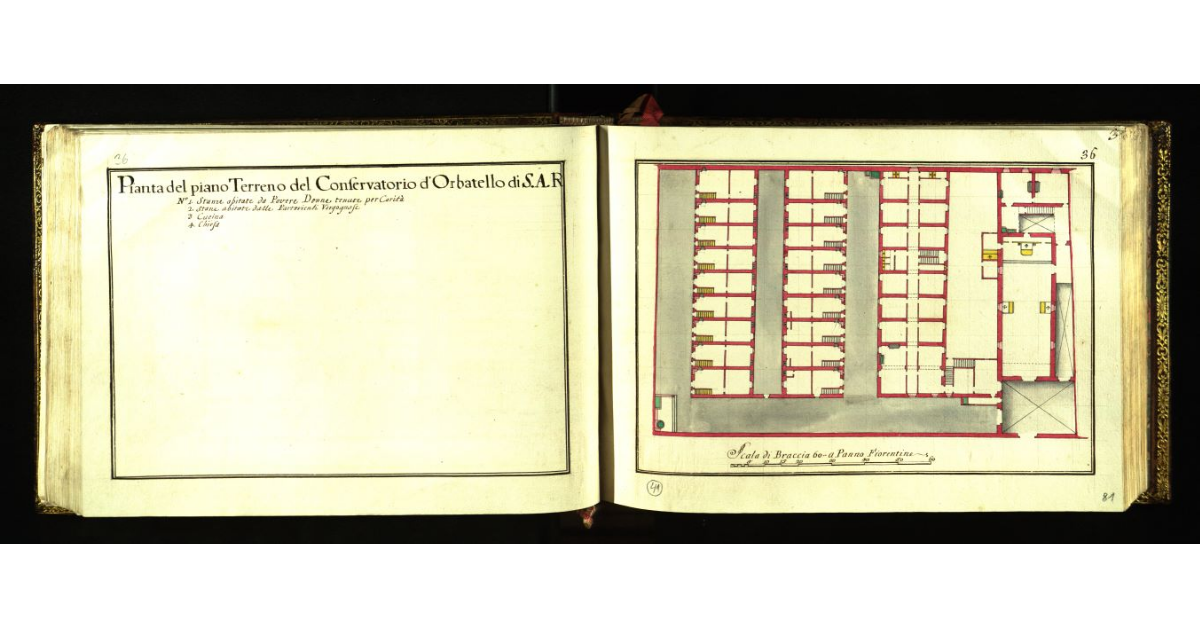 36
Pianta del piano Terreno del Conservatorio d'Orbatello di S.A.R
N.º 1 Stanze abitate da Povere Donne tenute per Carità
2 Stanze abitate dalle Partorienti Vergognose
3 Cucina
4 Chiesa
36
Scala di Braccia 60 a Panno Fiorentine
41
81